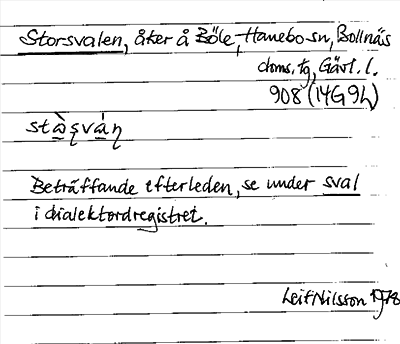 Storsvalen, åker å Böle, Hanebo sn, Bollnäs
doms. tg, Gävl. l.
908 (14G 9h)
Beträffande efterleden, se under sval
i dialektordregistret.
Leif Nilsson 1978